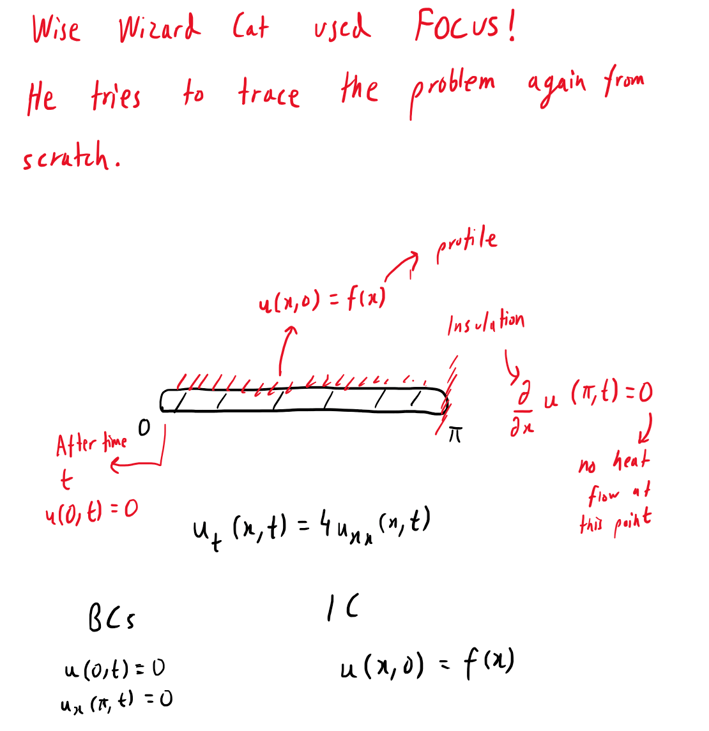 Wise Wizard Cat used FOCUS!
He tries to trace the problem again from
scratch.
profile
u(x,0) = f(x)
Insulation
∂/∂x u (π,t) = 0
0
π
After time
t
u(0,t) = 0
no heat
flow at
this point
u_t (x,t) = 4 u_xx (x,t)
BCs
IC
u(0,t) = 0
u_x (π,t) = 0
u(x,0) = f(x)